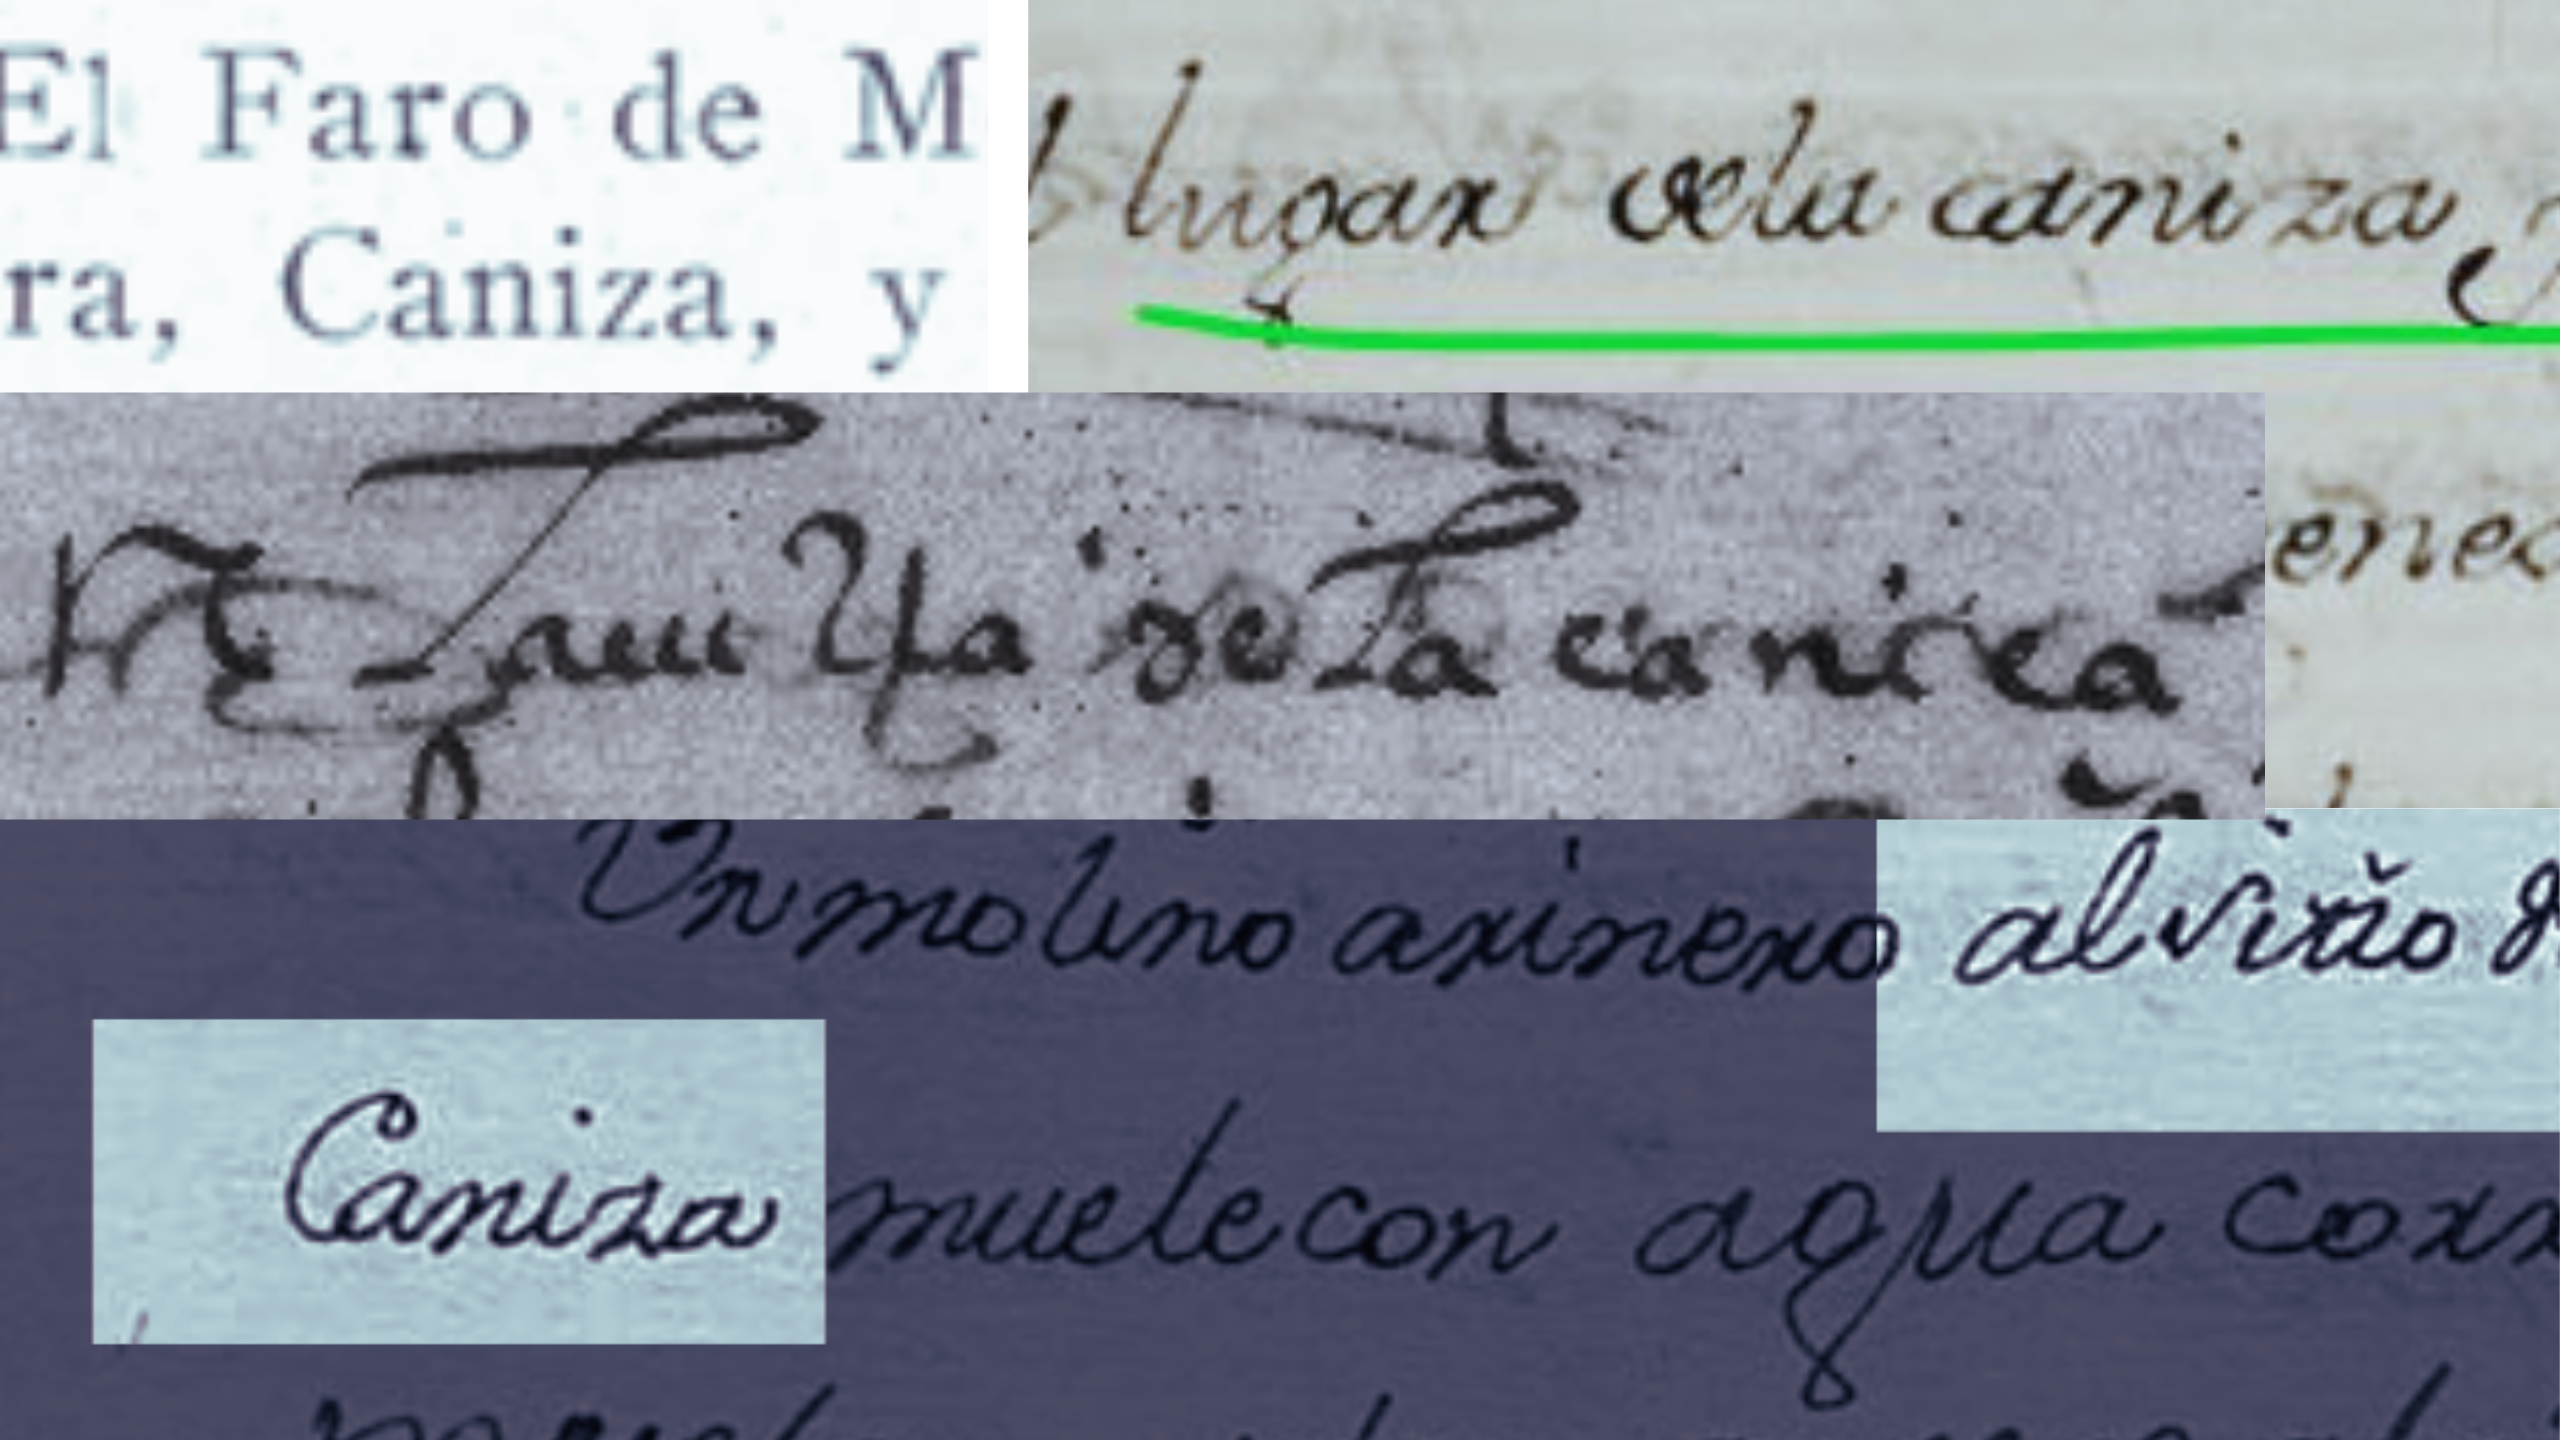 El Faro de M
ra, Caniza, y
lugar dela caniza
de la canica
Un molino arinero al sitio d
Caniza muele con agua corr